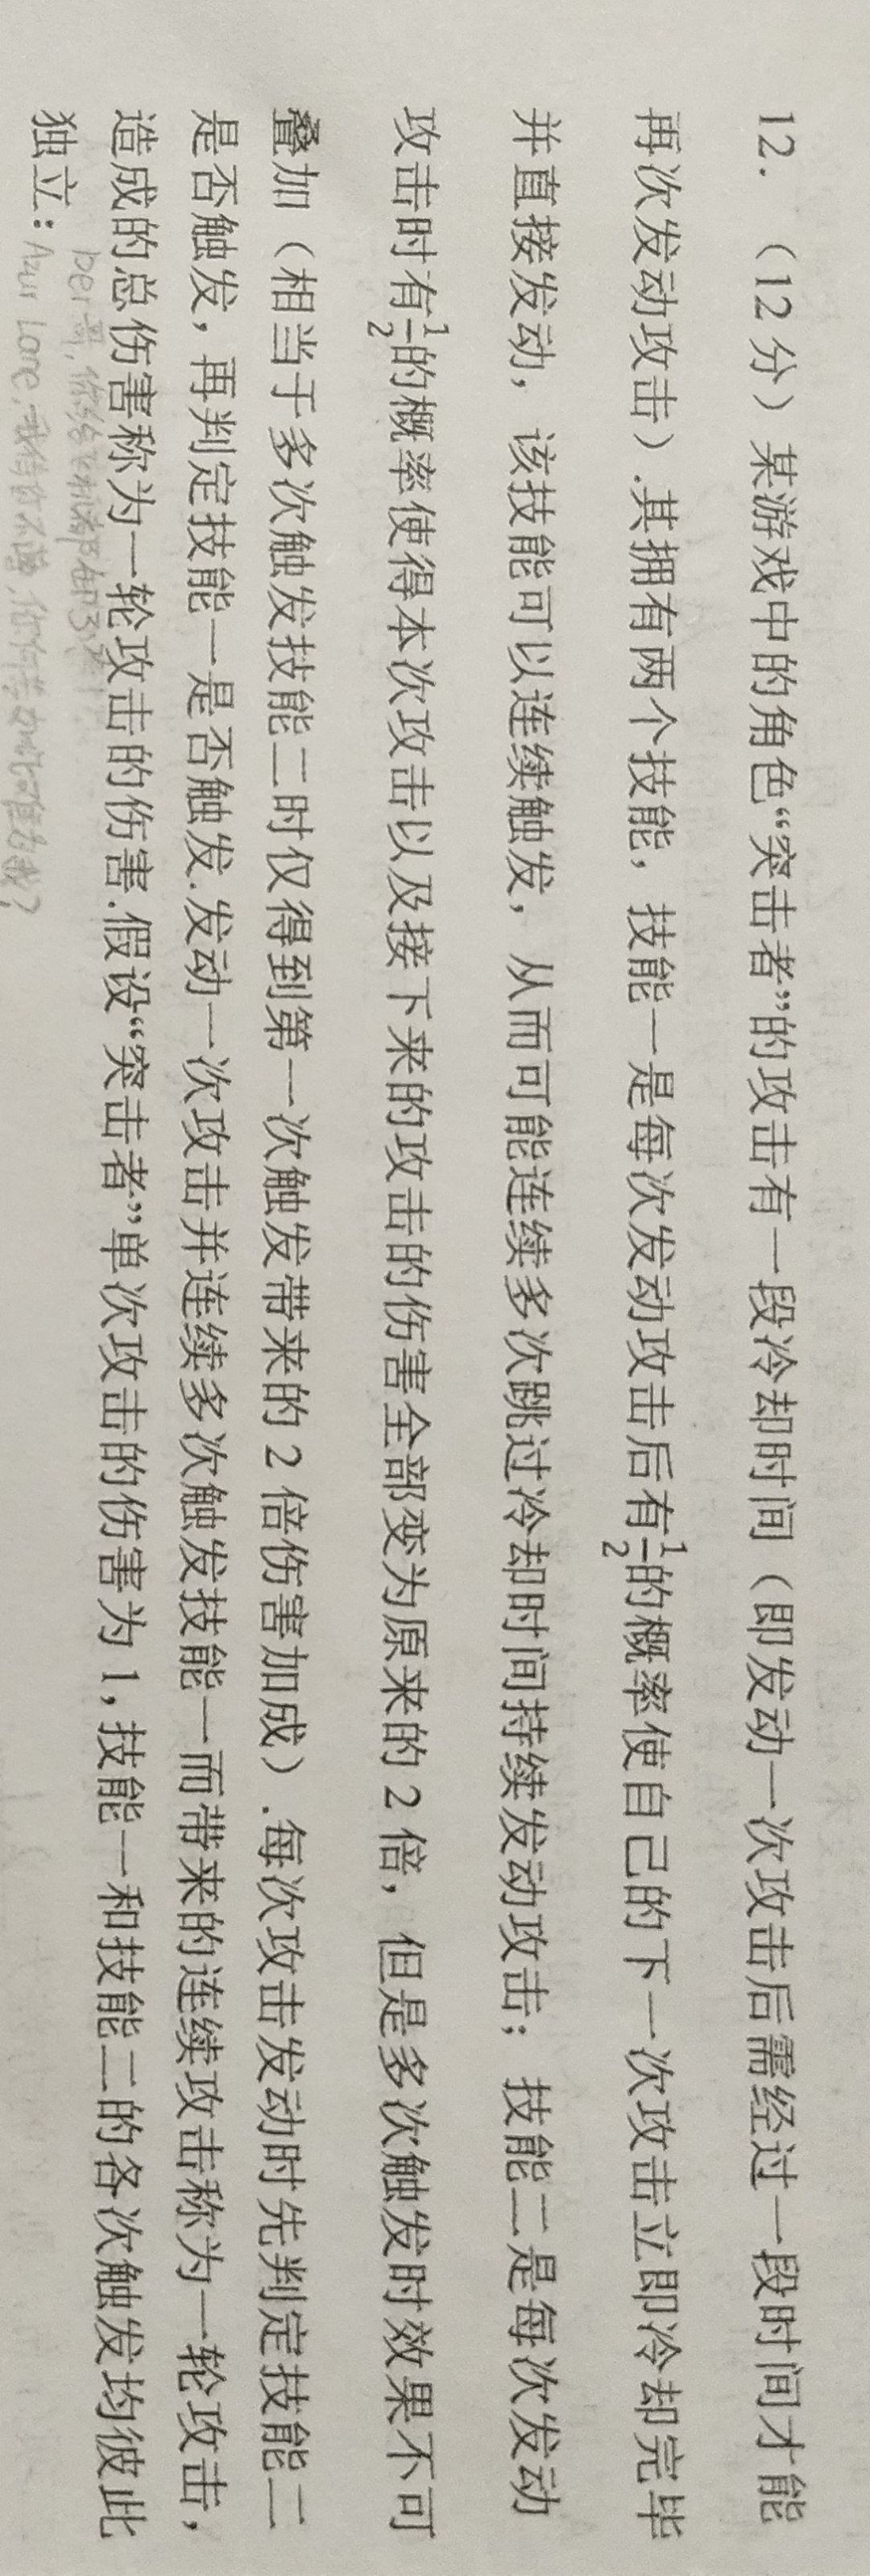 12. （12 分）某游戏中的角色“突击者”的攻击有一段冷却时间（即发动一次攻击后需经过一段时间才能
再次发动攻击）.其拥有两个技能，技能一是每次发动攻击后有1/2的概率使自己的下一次攻击立即冷却完毕
并直接发动，该技能可以连续触发，从而可能连续多次跳过冷却时间持续发动攻击；技能二是每次发动
攻击时有1/2的概率使得本次攻击以及接下来的攻击的伤害全部变为原来的 2 倍，但是多次触发时效果不可
叠加（相当于多次触发技能二时仅得到第一次触发带来的 2 倍伤害加成）.每次攻击发动时先判定技能二
是否触发，再判定技能一是否触发.发动一次攻击并连续多次触发技能一而带来的连续攻击称为一轮攻击，
造成的总伤害称为一轮攻击的伤害.假设“突击者”单次攻击的伤害为 1,技能一和技能二的各次触发均彼此
独立：
ber哥，你给
Azur Lane,